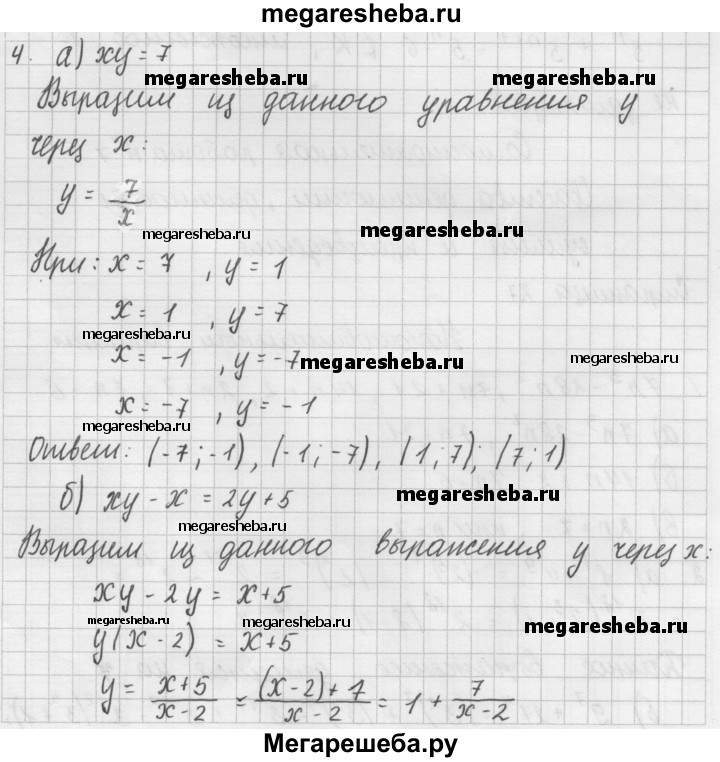 megaresheba.ru
4. а) xy = 7
megaresheba.ru megaresheba.ru
Выразим из данного уравнения y
через x:
y = 7/x
megaresheba.ru megaresheba.ru
При: x = 7 , y = 1
x = 1 , y = 7
megaresheba.ru
x = -1 , y = -7
megaresheba.ru megaresheba.ru
x = -7 , y = -1
megaresheba.ru
Ответ: (-7; -1), (-1; -7), (1; 7); (7; 1)
б) xy - x = 2y + 5
megaresheba.ru
megaresheba.ru
Выразим из данного выражения y через x:
xy - 2y = x + 5
megaresheba.ru megaresheba.ru megaresheba.ru
y(x - 2) = x + 5
y = x+5/x-2 = (x-2)+7/x-2 = 1 + 7/x-2
Мегарешеба.ру